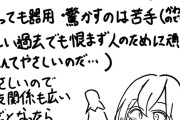 ても器用・驚かすのは苦手
しい過去でも恨まず人のために頑
ひてやさしいのだ…)
さしいので
友関係も広い
どとなったら